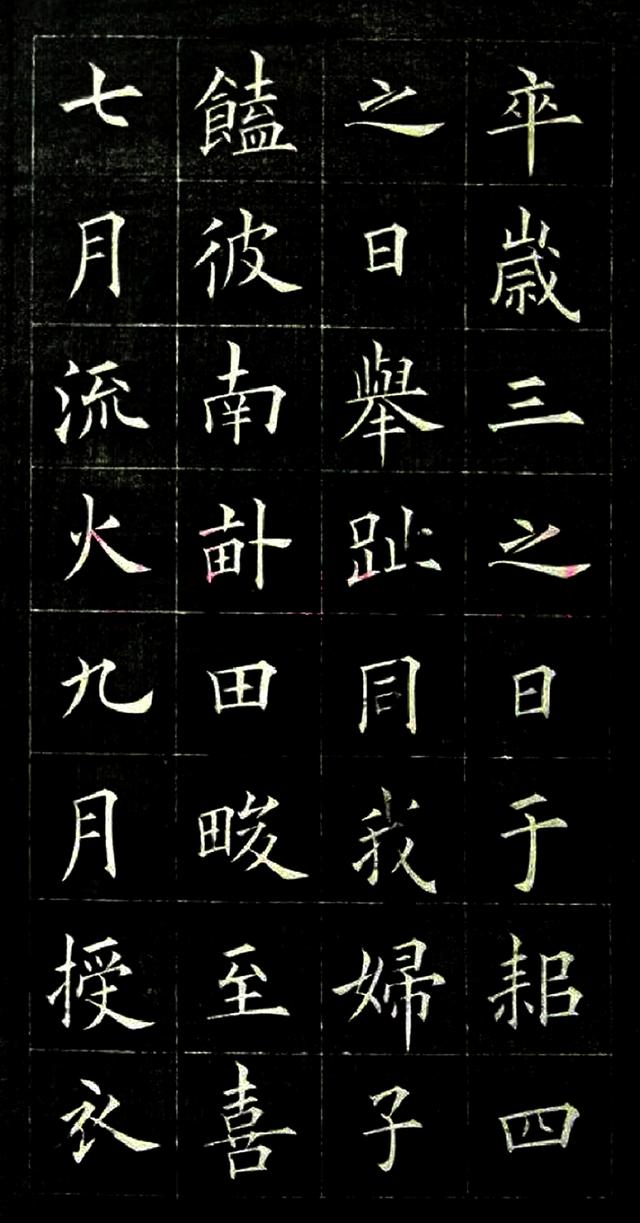 卒歲三之日于耜四
之日舉趾同我婦子
饁彼南畝田畯至喜
七月流火九月授衣